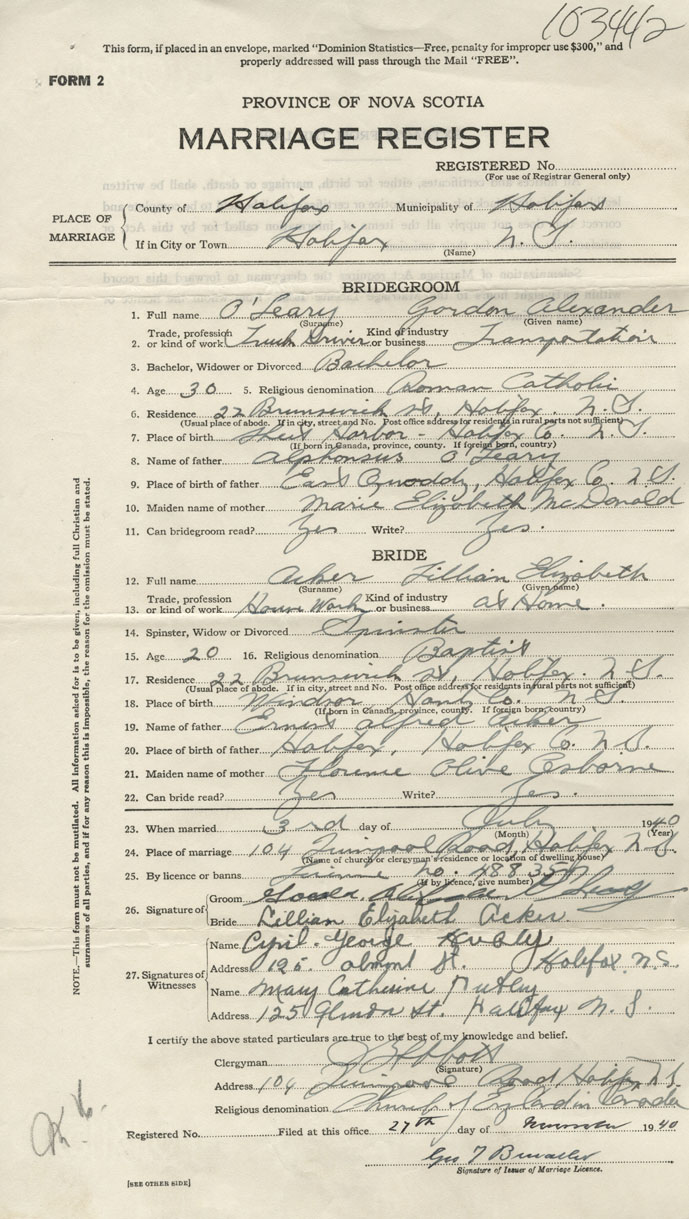 103442
This form, if placed in an envelope, marked "Dominion Statistics—Free, penalty for improper use $300," and
properly addressed will pass through the Mail "FREE".
FORM 2
PROVINCE OF NOVA SCOTIA
MARRIAGE REGISTER
REGISTERED No.
(For use of Registrar General only)
PLACE OF MARRIAGE
County of Halifax Municipality of Halifax
If in City or Town Halifax N.S.
(Name)
BRIDEGROOM
1. Full name O'Leary Gordon Alexander
(Surname) (Given name)
2. Trade, profession or kind of work Truck Driver Kind of industry or business Transportation
3. Bachelor, Widower or Divorced Bachelor
4. Age 30 5. Religious denomination Roman Catholic
6. Residence 22 Brunswick St, Halifax. N.S.
(Usual place of abode. If in city, street and No. Post office address for residents in rural parts not sufficient)
7. Place of birth Sheet Harbor - Halifax Co. N.S.
(If born in Canada, province, county. If foreign born, country)
8. Name of father Alphonsus O'Leary
9. Place of birth of father East Quoddy, Halifax Co. N.S.
10. Maiden name of mother Marie Elizabeth McDonald
11. Can bridegroom read? Yes Write? Yes.
BRIDE
12. Full name Acker Lillian Elizabeth
(Surname) (Given name)
13. Trade, profession or kind of work House Work Kind of industry or business at Home.
14. Spinster, Widow or Divorced Spinster
15. Age 20 16. Religious denomination Baptist
17. Residence 22 Brunswick St, Halifax. N.S.
(Usual place of abode. If in city, street and No. Post office address for residents in rural parts not sufficient)
18. Place of birth Windsor, Hants Co. N.S.
(If born in Canada, province, county. If foreign born, country)
19. Name of father Ernest Alfred Acker
20. Place of birth of father Halifax, Halifax Co. N.S.
21. Maiden name of mother Florence Olive Osborne
22. Can bride read? Yes Write? Yes.
23. When married 3rd day of July 1940
(Month) (Year)
24. Place of marriage 104 Road, Halifax N.S.
(Name of church or clergyman's residence or location of dwelling house)
25. By licence or banns no.
(If by licence, give number)
26. Signature of
Groom Gordon Alexander O'Leary
Bride Lillian Elizabeth Acker
27. Signatures of Witnesses
Name Cyril George
Address 125 Almont St. Halifax N.S.
Name Mary Catherine
Address 125 Almon St. Halifax N.S.
I certify the above stated particulars are true to the best of my knowledge and belief.
Clergyman Abbott
(Signature)
Address 104 Road Halifax N.S.
Religious denomination Church of England in Canada
Registered No. Filed at this office 27th day of 1940
Geo T
Signature of Issuer of Marriage Licence.
[SEE OTHER SIDE]
NOTE.—This form must not be mutilated. All information asked for is to be given, including full Christian and
surnames of all parties, and if for any reason this is impossible, the reason for the omission must be stated.